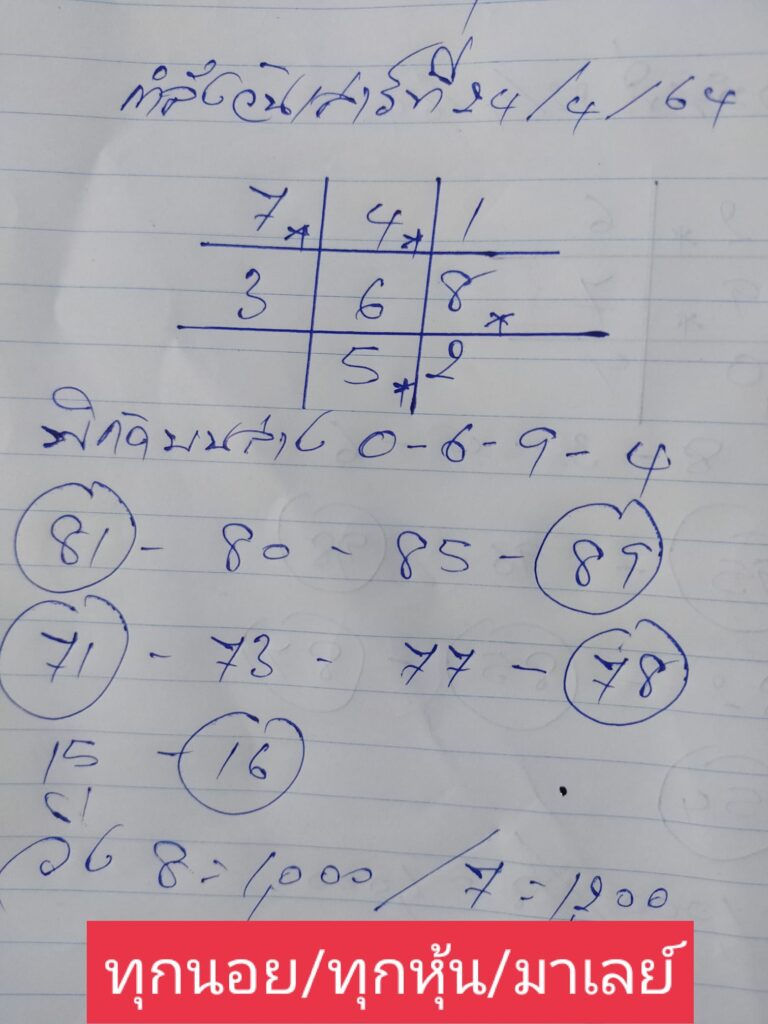 กำลังวันเสาร์ที่ 24/4/64
7* 4* 1
3 6 8*
5* 2
พิกัดบนล่าง 0-6-9-4
81 - 80 - 85 - 89
71 - 73 - 77 - 78
15 - 16
61
วิ่ง 8 = 1,000 / 7 = 1,200
ทุกนอย/ทุกหุ้น/มาเลย์